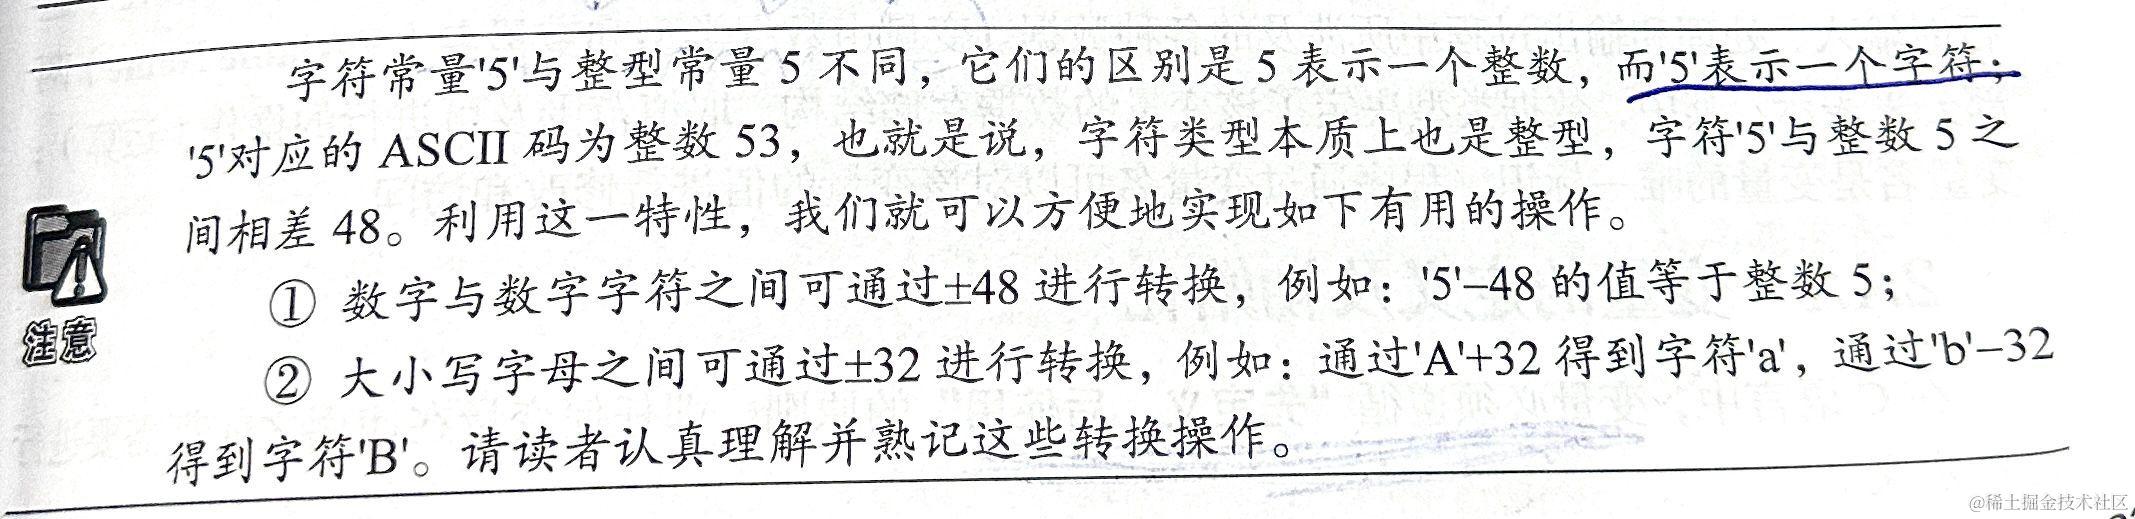 字符常量'5'与整型常量 5 不同，它们的区别是 5 表示一个整数，而'5'表示一个字符；
'5'对应的 ASCII 码为整数 53，也就是说，字符类型本质上也是整型，字符'5'与整数 5 之
间相差 48。利用这一特性，我们就可以方便地实现如下有用的操作。
① 数字与数字字符之间可通过±48 进行转换，例如：'5'–48 的值等于整数 5；
② 大小写字母之间可通过±32 进行转换，例如：通过'A'+32 得到字符'a'，通过'b'–32
得到字符'B'。请读者认真理解并熟记这些转换操作。
注意
@稀土掘金技术社区